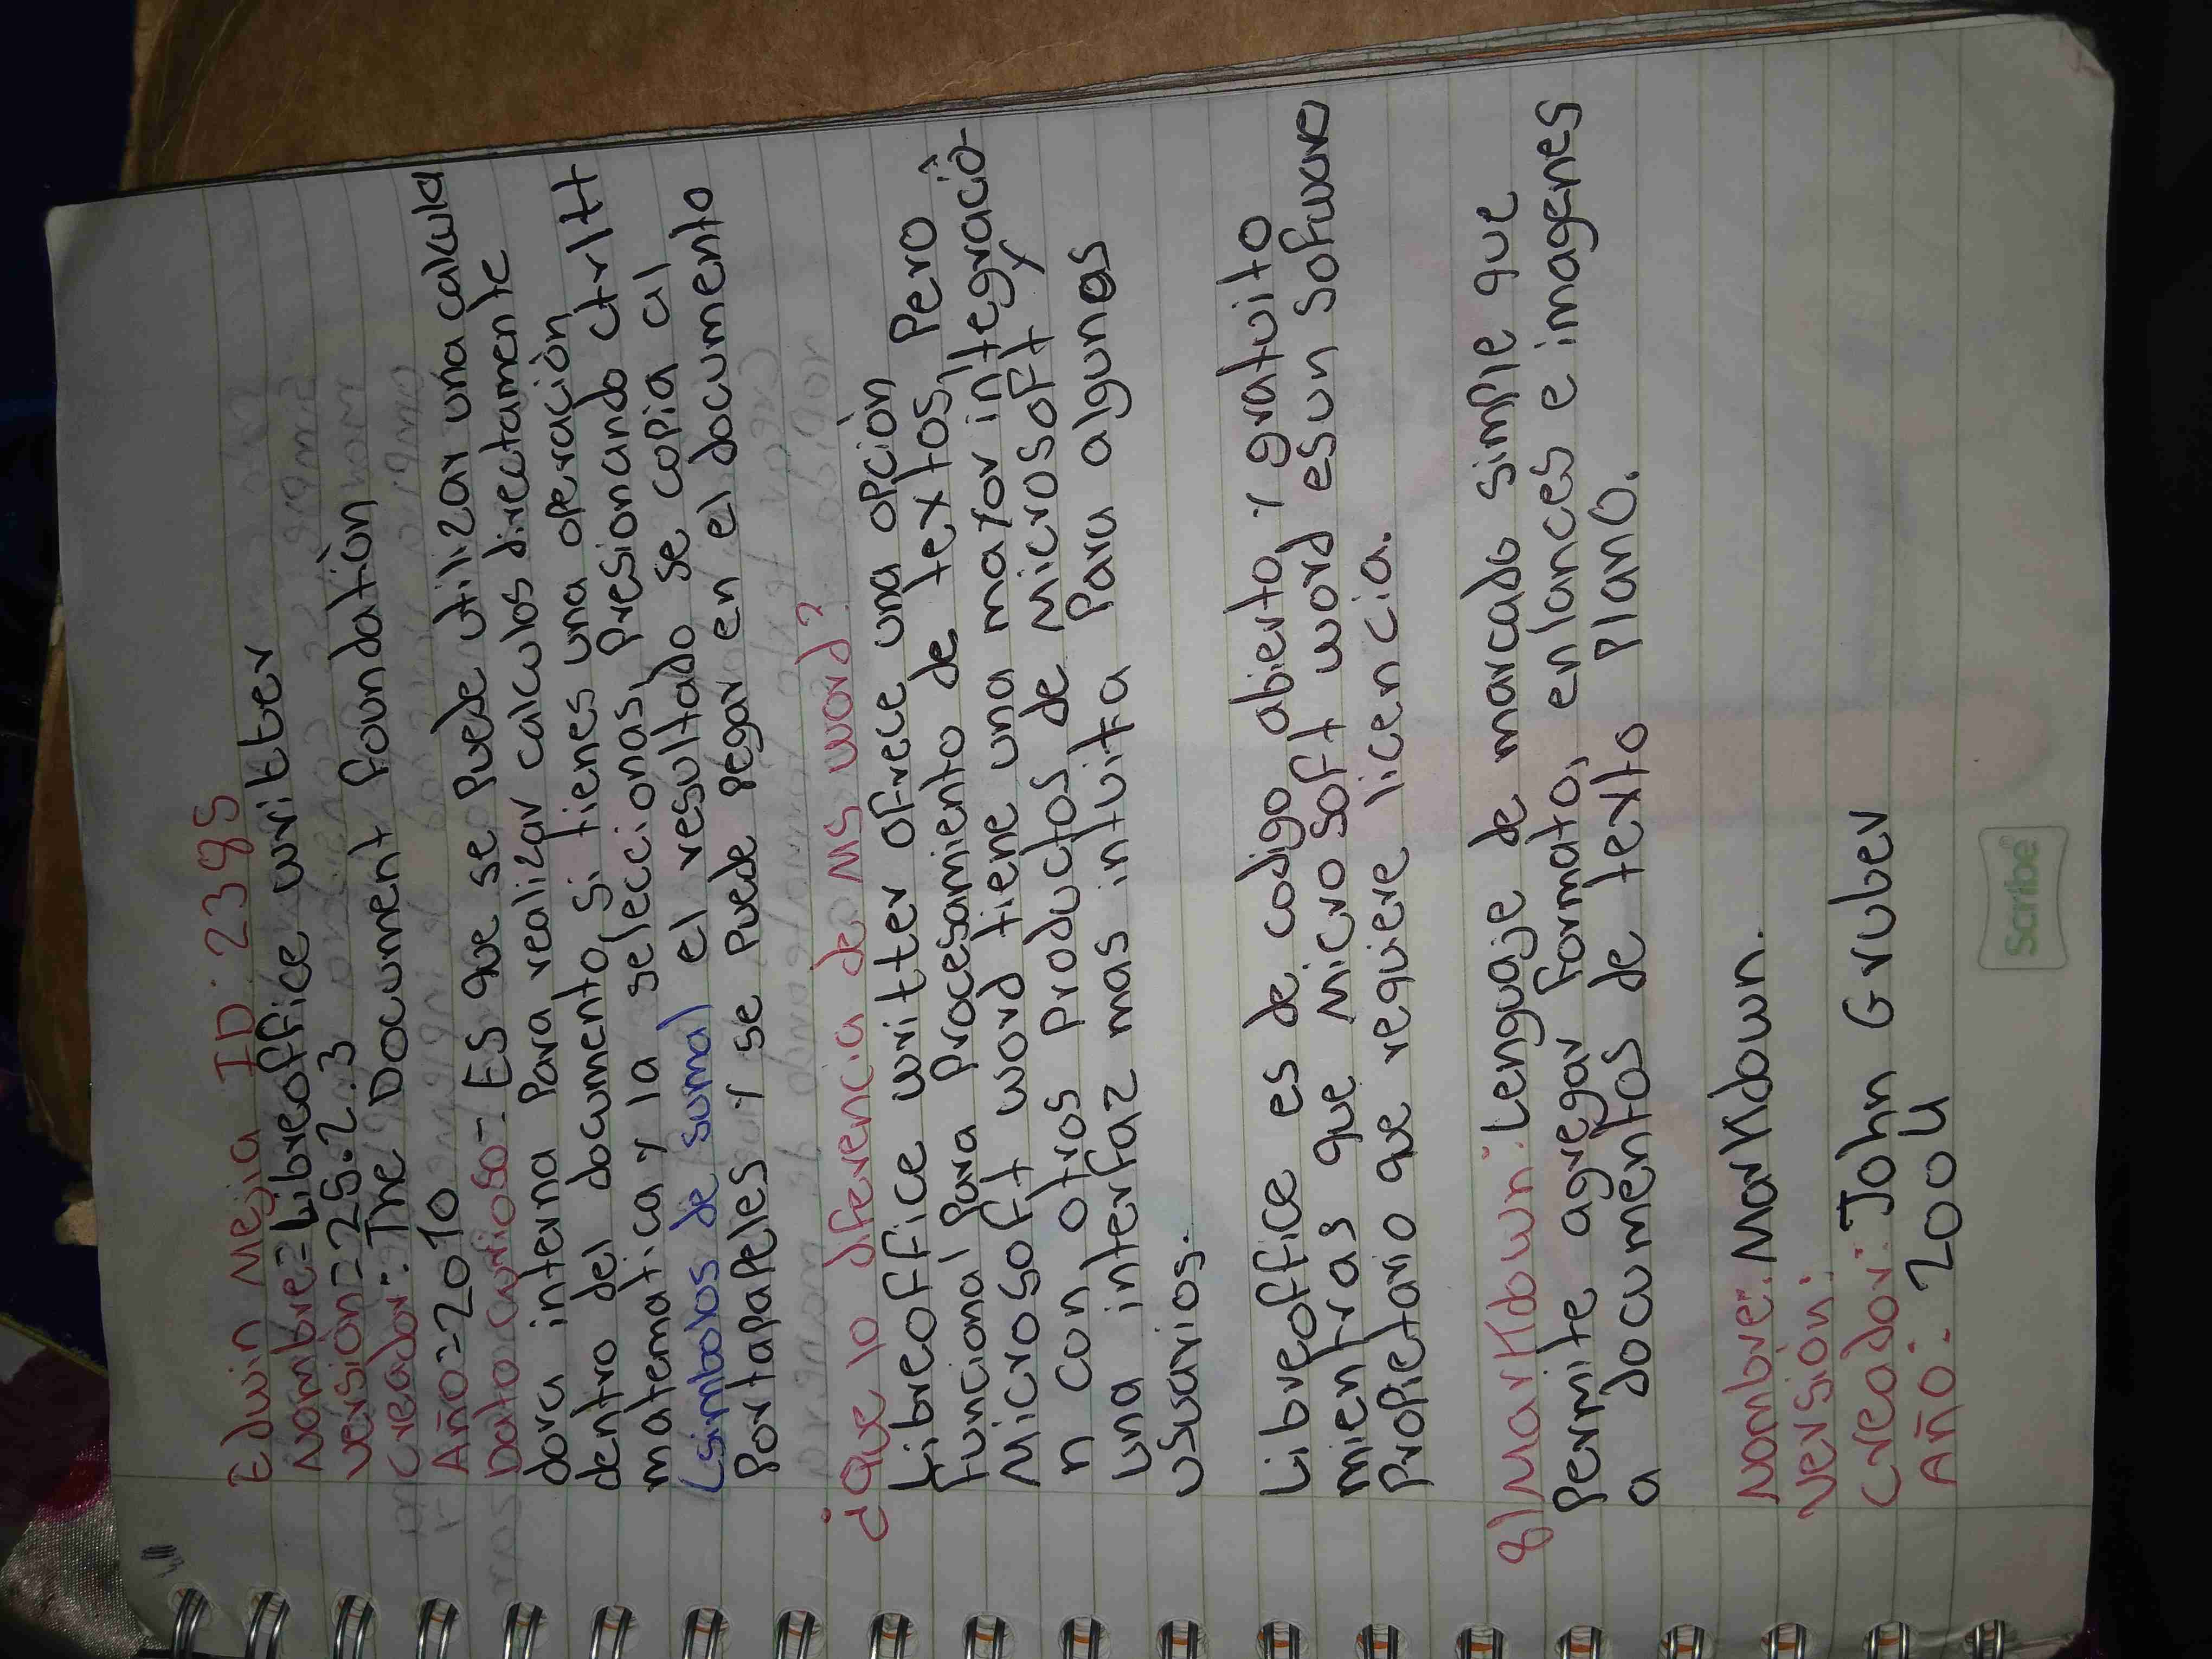 Edwin Mejia ID: 2395
Nombre= Libreoffice writter
Versión= 25.2.3
Creador: The Document foundatiòn
Año=2010
Dato curioso- Es que se puede utilizar una calcula
dora interna para realizar calculos directamente
dentro del documento, si tienes una operaciòn
matematica y la seleccionas, presionando ctrl++
(simbolos de suma) el resultado se copia al
Portapapeles y se puede pegar en el documento
¿Que lo diferencia de MS word?
Libreoffice writter ofrece una opciòn
funcional para procesamiento de textos, pero
Microsoft word tiene una mayor integraciò-
n con otros productos de Microsoft y
una interfaz mas intuita para algunas
usuarios.
Libreoffice es de codigo abierto y gratuito
mientras que Microsoft word es un sofware
propietario que requiere licencia.
8) Markdown: Lenguaje de marcado simple que
permite agregar formato, enlances e imagenes
a documentos de texto plano.
Nombre: Markdown.
Versiòn:
Creador: John Gruber
Año: 2004
Scribe®